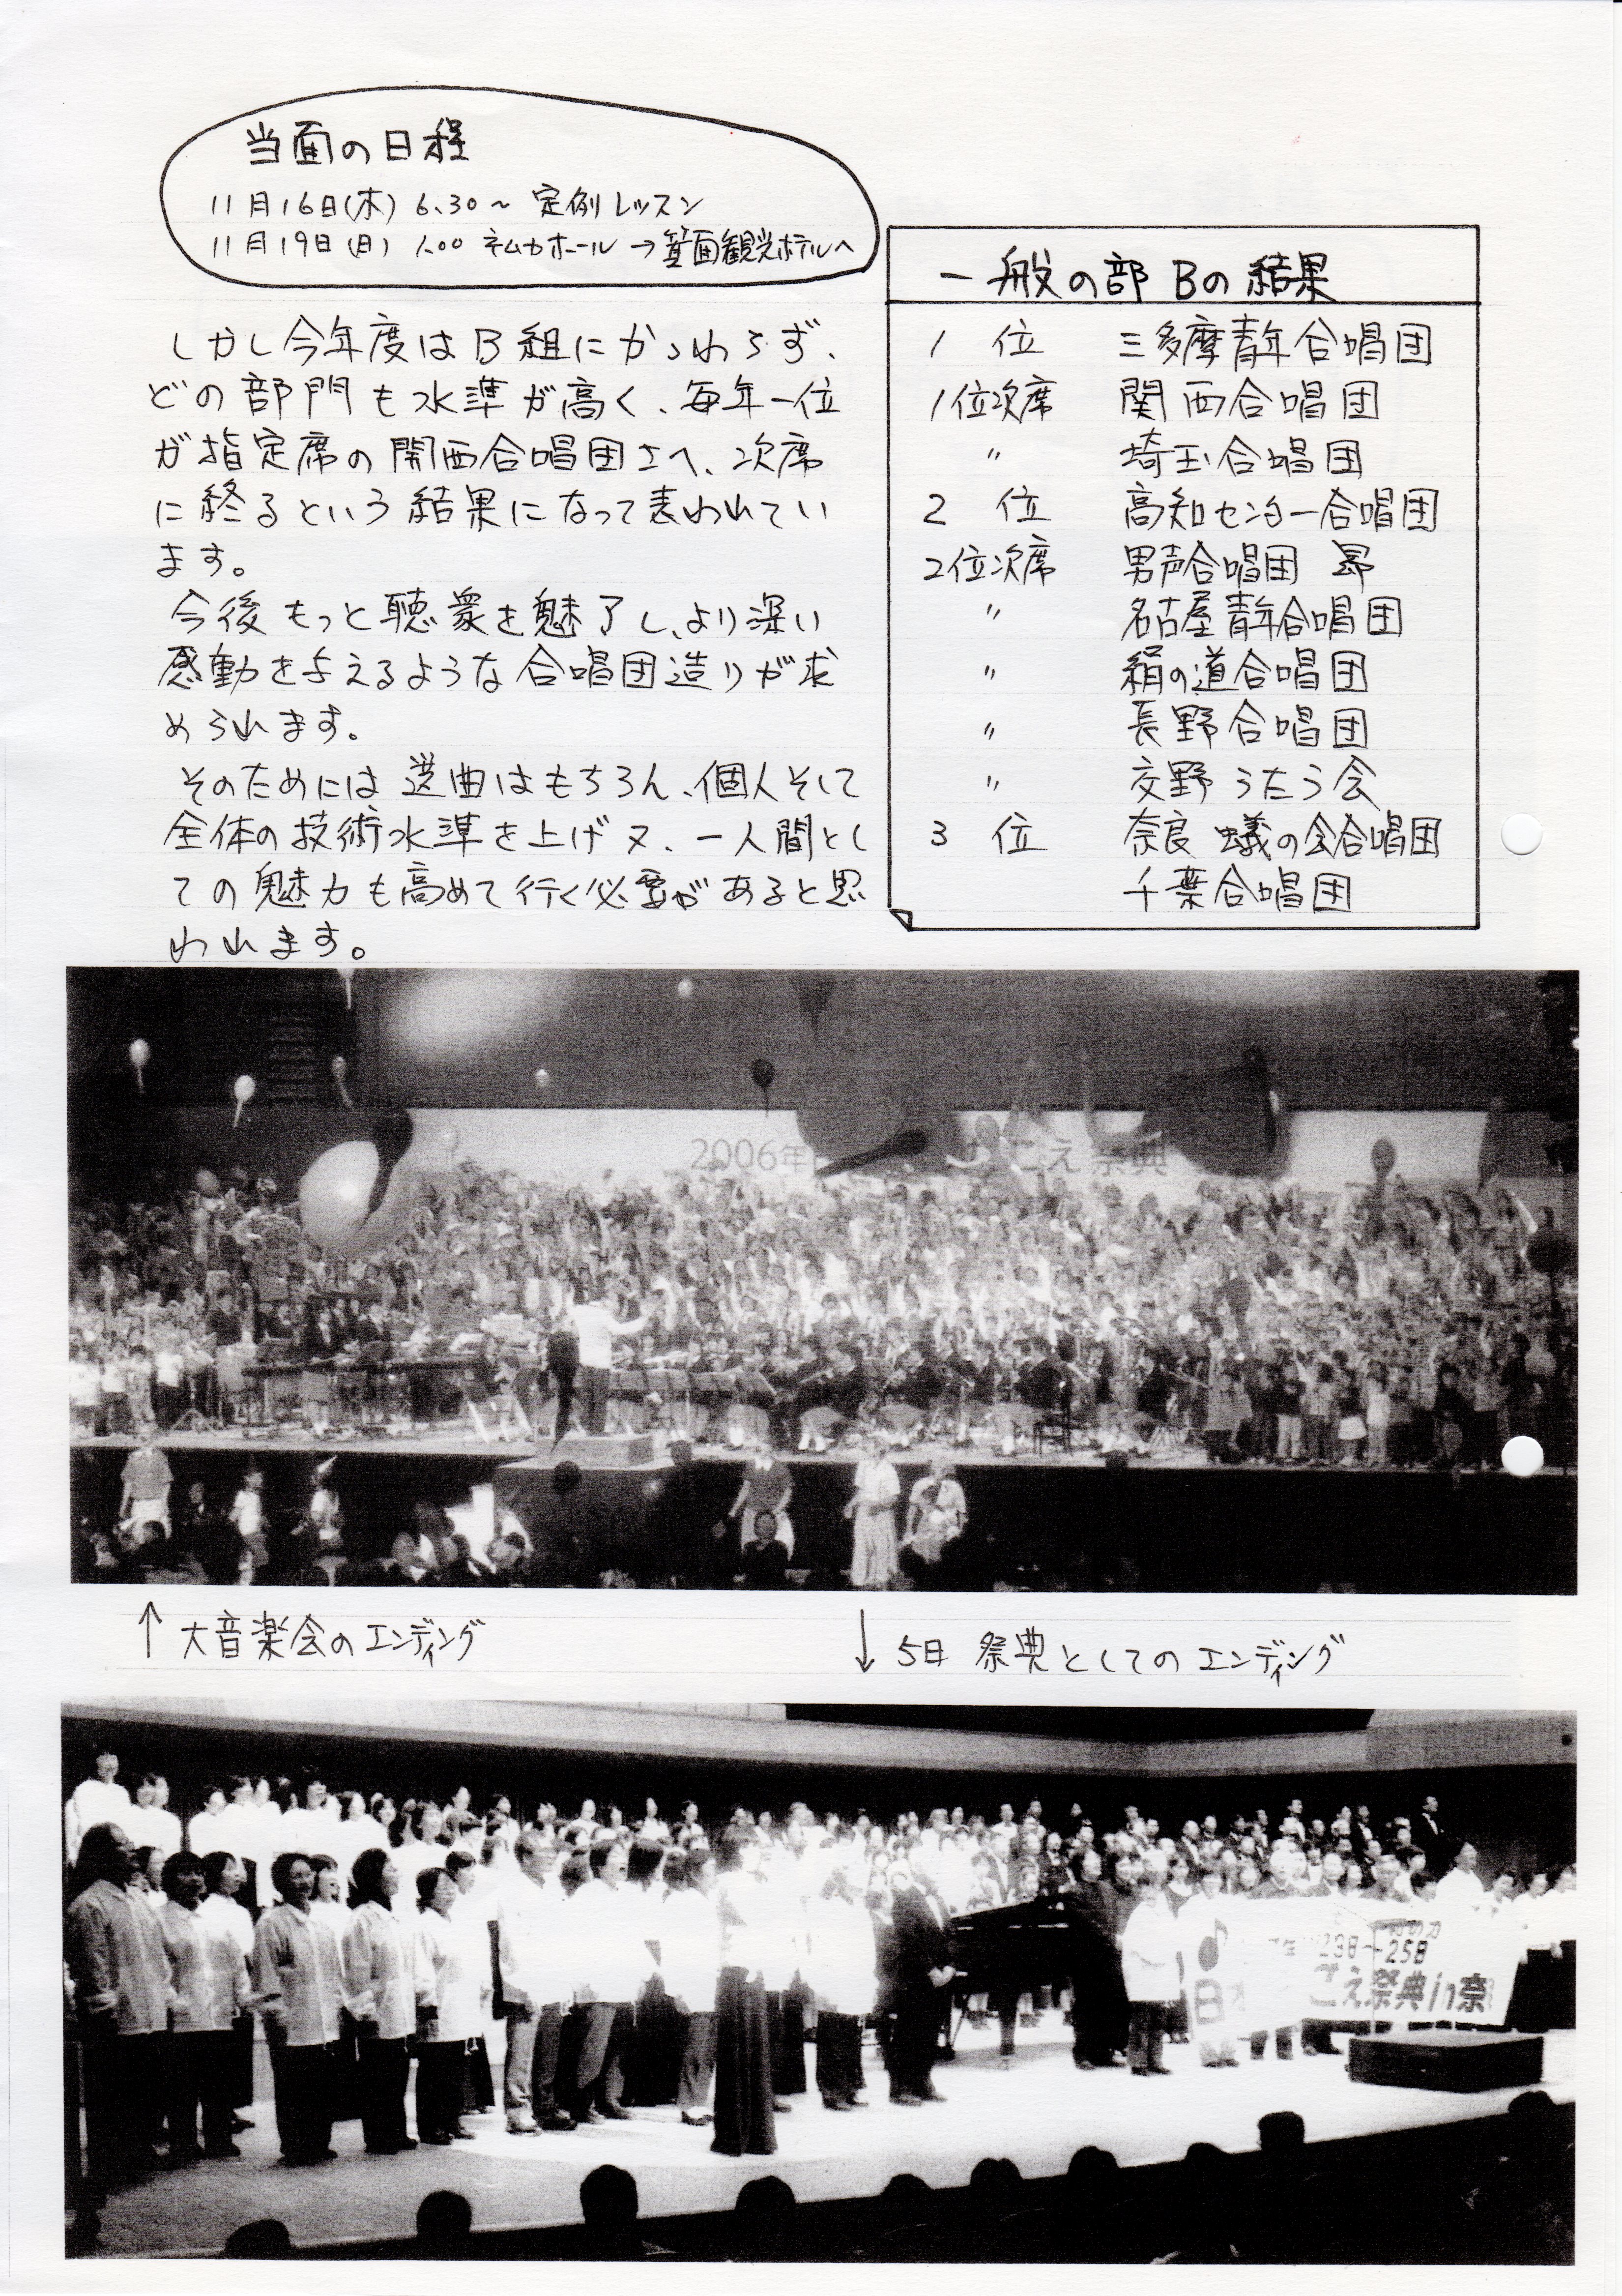 当面の日程
11月16日(木) 6.30～ 定例レッスン
11月19日(日) 1.00 ネムカホール→箕面観光ホテルへ
しかし今年度はB組にかゝわらず、
どの部門も水準が高く、毎年一位
が指定席の関西合唱団さへ、次席
に終るという結果になって表われてい
ます。
今後もっと聴衆を魅了し、より深い
感動を与えるような合唱団造りが求
められます。
そのためには選曲はもちろん、個人そして
全体の技術水準を上げ又、一人間とし
ての魅力も高めて行く必要があると思
われます。
一般の部 Bの結果
1 位 三多摩青年合唱団
1位次席 関西合唱団
〃 埼玉合唱団
2 位 高知センター合唱団
2位次席 男声合唱団 昴
〃 名古屋青年合唱団
〃 絹の道合唱団
〃 長野合唱団
〃 交野うたう会
3 位 奈良 蟻の会合唱団
千葉合唱団
2006年 こえ祭典
↑大音楽会のエンディング
↓5日 祭典としてのエンディング
23日→25日
日 ごえ祭典in奈